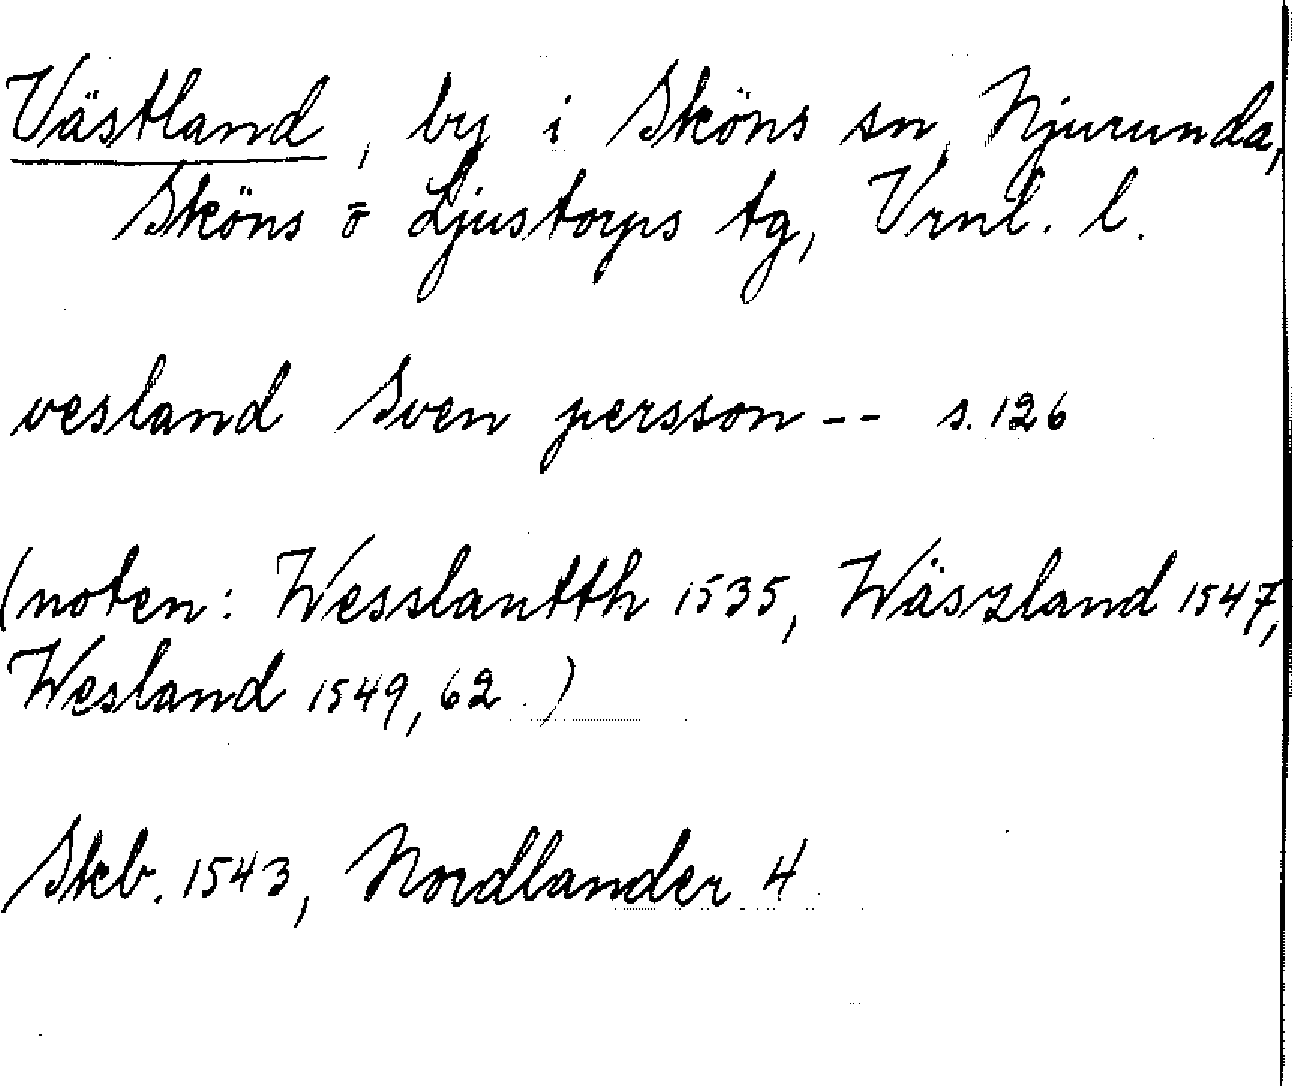 Västland, by i Sköns sn, Njurunda,
Sköns o Ljustorps tg, Vrnl. l.
vesland Sven persson -- s. 126
(noten: Wesslantth 1535, Wäszland 1547,
Wesland 1549, 62.)
Skb. 1543, Nordlander 4